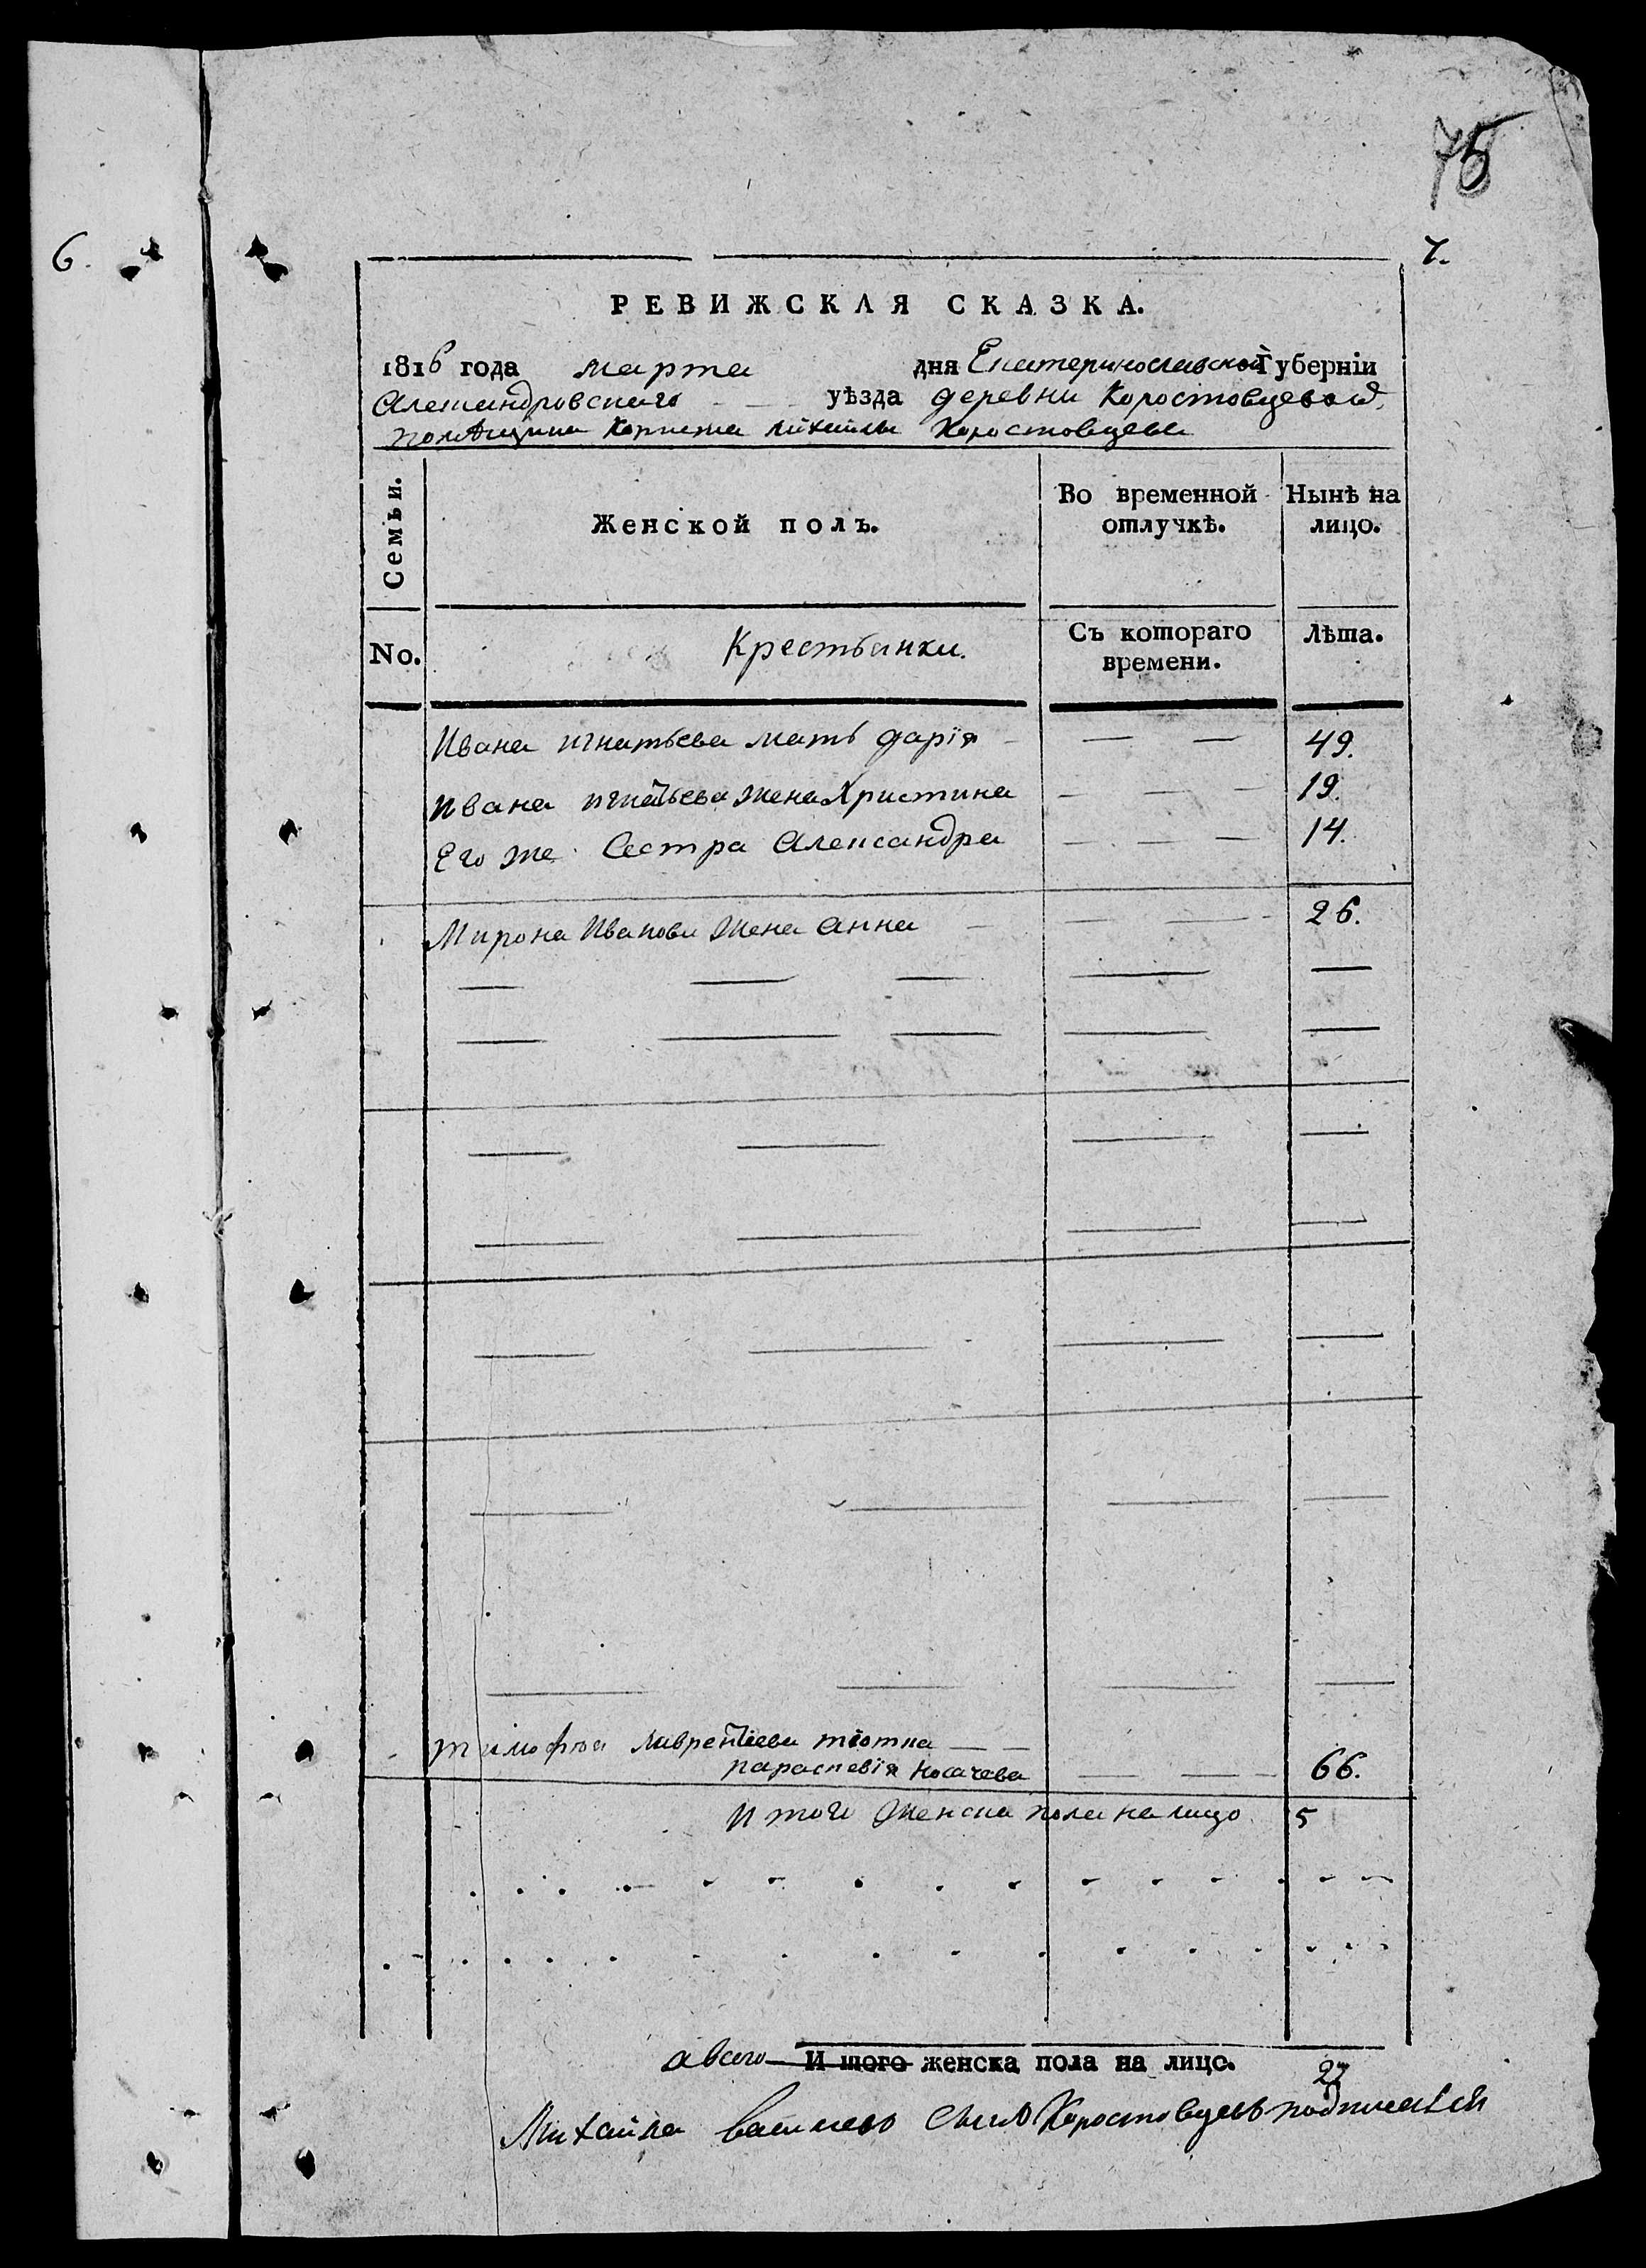 75
6.
7.
РЕВИЖСКАЯ СКАЗКА.
1816 года марта дня Екатеринославской Губерніи
Александровскаго уѣзда деревни Коростовцевой,
помѣщика Корнета Михайлы Коростовцева
Семьи.
Женской полъ.
Во временной отлучкѣ.
Нынѣ на лицо.
No.
Крестьянки.
Съ котораго времени.
Лѣта.
Ивана игнатьева мать дарія — — 49.
Ивана игнатьева жена Христина — — — 19.
Его же Сестра Александра — — — 14.
Мирона Иванова жена анна — — — 26.
тимофѣя лаврентіева тіотка — —
параскевія Носачева — — — 66.
Итого женска пола на лицо 5
авсего Итого женска пола на лицо. 22
Михайла васильевъ сынъ Коростовцевъ подписался